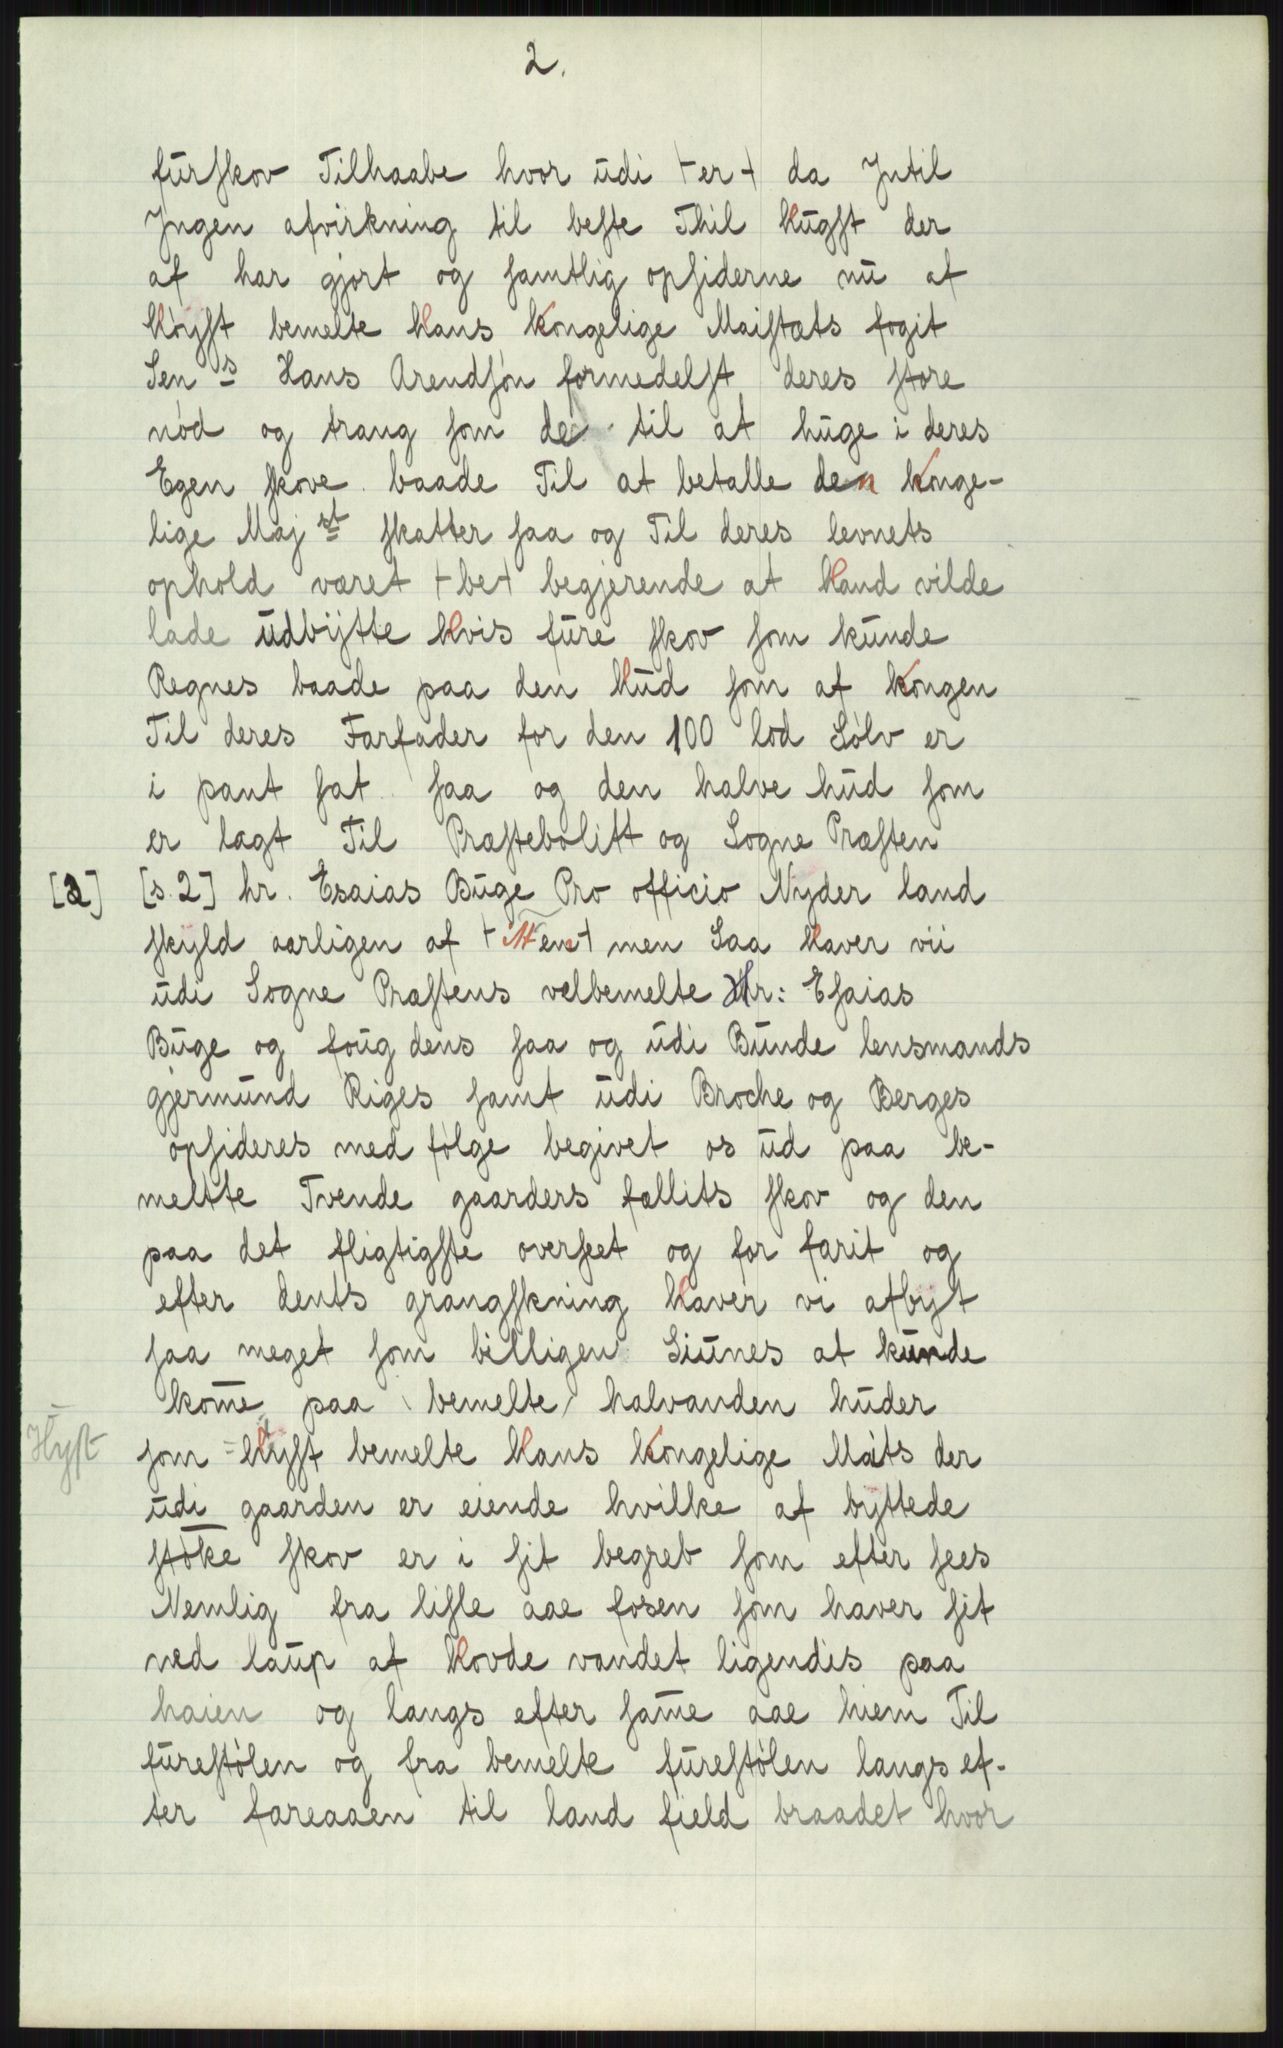 2.
furſkov Tilhaabe hvor udi + er + da Jntil
Jngen afvirkning til beſte Thil Hugſt der
af har gjort og ſamtlig opſiderne nu af
Höyſt bemelte Hans Kongelige Maiſtæts fogit
Sen s Hans Arendſón formedelſt deres ſtore
nód og trang ſom de til at huge i deres
Egen ſkove baade Til at betalle den Konge-
lige Maj st ſkatter ſaa og Til deres levnets
ophold været + be + begjerende at Hand vilde
lade udbÿtte Hvis fure ſkov ſom kunde
Regnes baade paa den Hud ſom af Kongen
Til deres Farfader for den 100 lod Sólv er
i pant ſat ſaa og den halve hud ſom
er lagt Til Præſtebolitt og Sogne Præſten
[a] [s. 2] hr. Esaias Buge Pro officio Nyder land
ſkyld aarligen af + Men + men Saa Haver vii
udi Sogne Præſtens velbemelte Hr: Eſaias
Buge og foug dens ſaa og udi Bunde lensmands
gjermund Riges ſamt udi Broche og Berges
opſideres med fólge begivet os ud paa be-
meltte Tvende gaarders fællits ſkov og den
paa det fligtigſte overſeet og for farit og
efter dents grangſkning Haver vi afbÿt
ſaa meget ſom billigen Siunes at kunde
kome paa bemelte halvanden huder
Hÿſt
ſom Hÿſt bemelte Hans Kongelige Mäts der
udi gaarden er eiende hvilke af byttede
ſtöke ſkov er i ſit begreb ſom efter ſees
Nemlig fra liſle aae foſen ſom haver ſit
ned laup af Hovde vandet ligendis paa
haien og langs efter ſame aae hiem Til
fureſtólen og fra bemelte fureſtólen langs ef-
ter fareaaen til land field braadet hvor